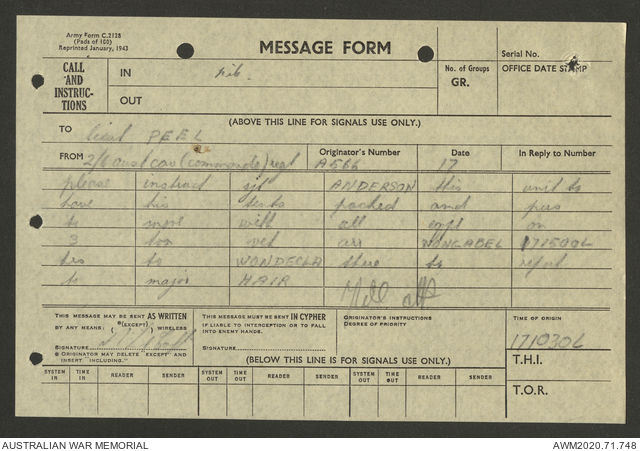 Army Form C.2128
(Pads of 100)
Reprinted January, 1943
MESSAGE FORM
Serial No.
CALL AND INSTRUCTIONS
IN
OUT
No. of Groups
GR.
OFFICE DATE STAMP
(ABOVE THIS LINE FOR SIGNALS USE ONLY.)
TO Lieut PEEL
FROM 2/6 aust cav (commando) regt
Originator's Number
A566
Date
17
In Reply to Number
please instruct sjt ANDERSON this unit to
have his tents packed and pers
to move with all eqpt on
3 ton veh arr WONGABEL 171500L
hrs to WONDECLA there to report
to major HAIR
THIS MESSAGE MAY BE SENT AS WRITTEN
BY ANY MEANS. (EXCEPT) WIRELESS
SIGNATURE
ORIGINATOR MAY DELETE EXCEPT AND
INSERT INCLUDING."
THIS MESSAGE MUST BE SENT IN CYPHER
IF LIABLE TO INTERCEPTION OR TO FALL
INTO ENEMY HANDS.
SIGNATURE
ORIGINATOR'S INSTRUCTIONS
DEGREE OF PRIORITY
TIME OF ORIGIN
171030L
(BELOW THIS LINE IS FOR SIGNALS USE ONLY.)
T.H.I.
T.O.R.
SYSTEM IN TIME IN READER SENDER SYSTEM OUT TIME OUT READER SENDER SYSTEM OUT TIME OUT READER SENDER
AUSTRALIAN WAR MEMORIAL
AWM2020.71.748